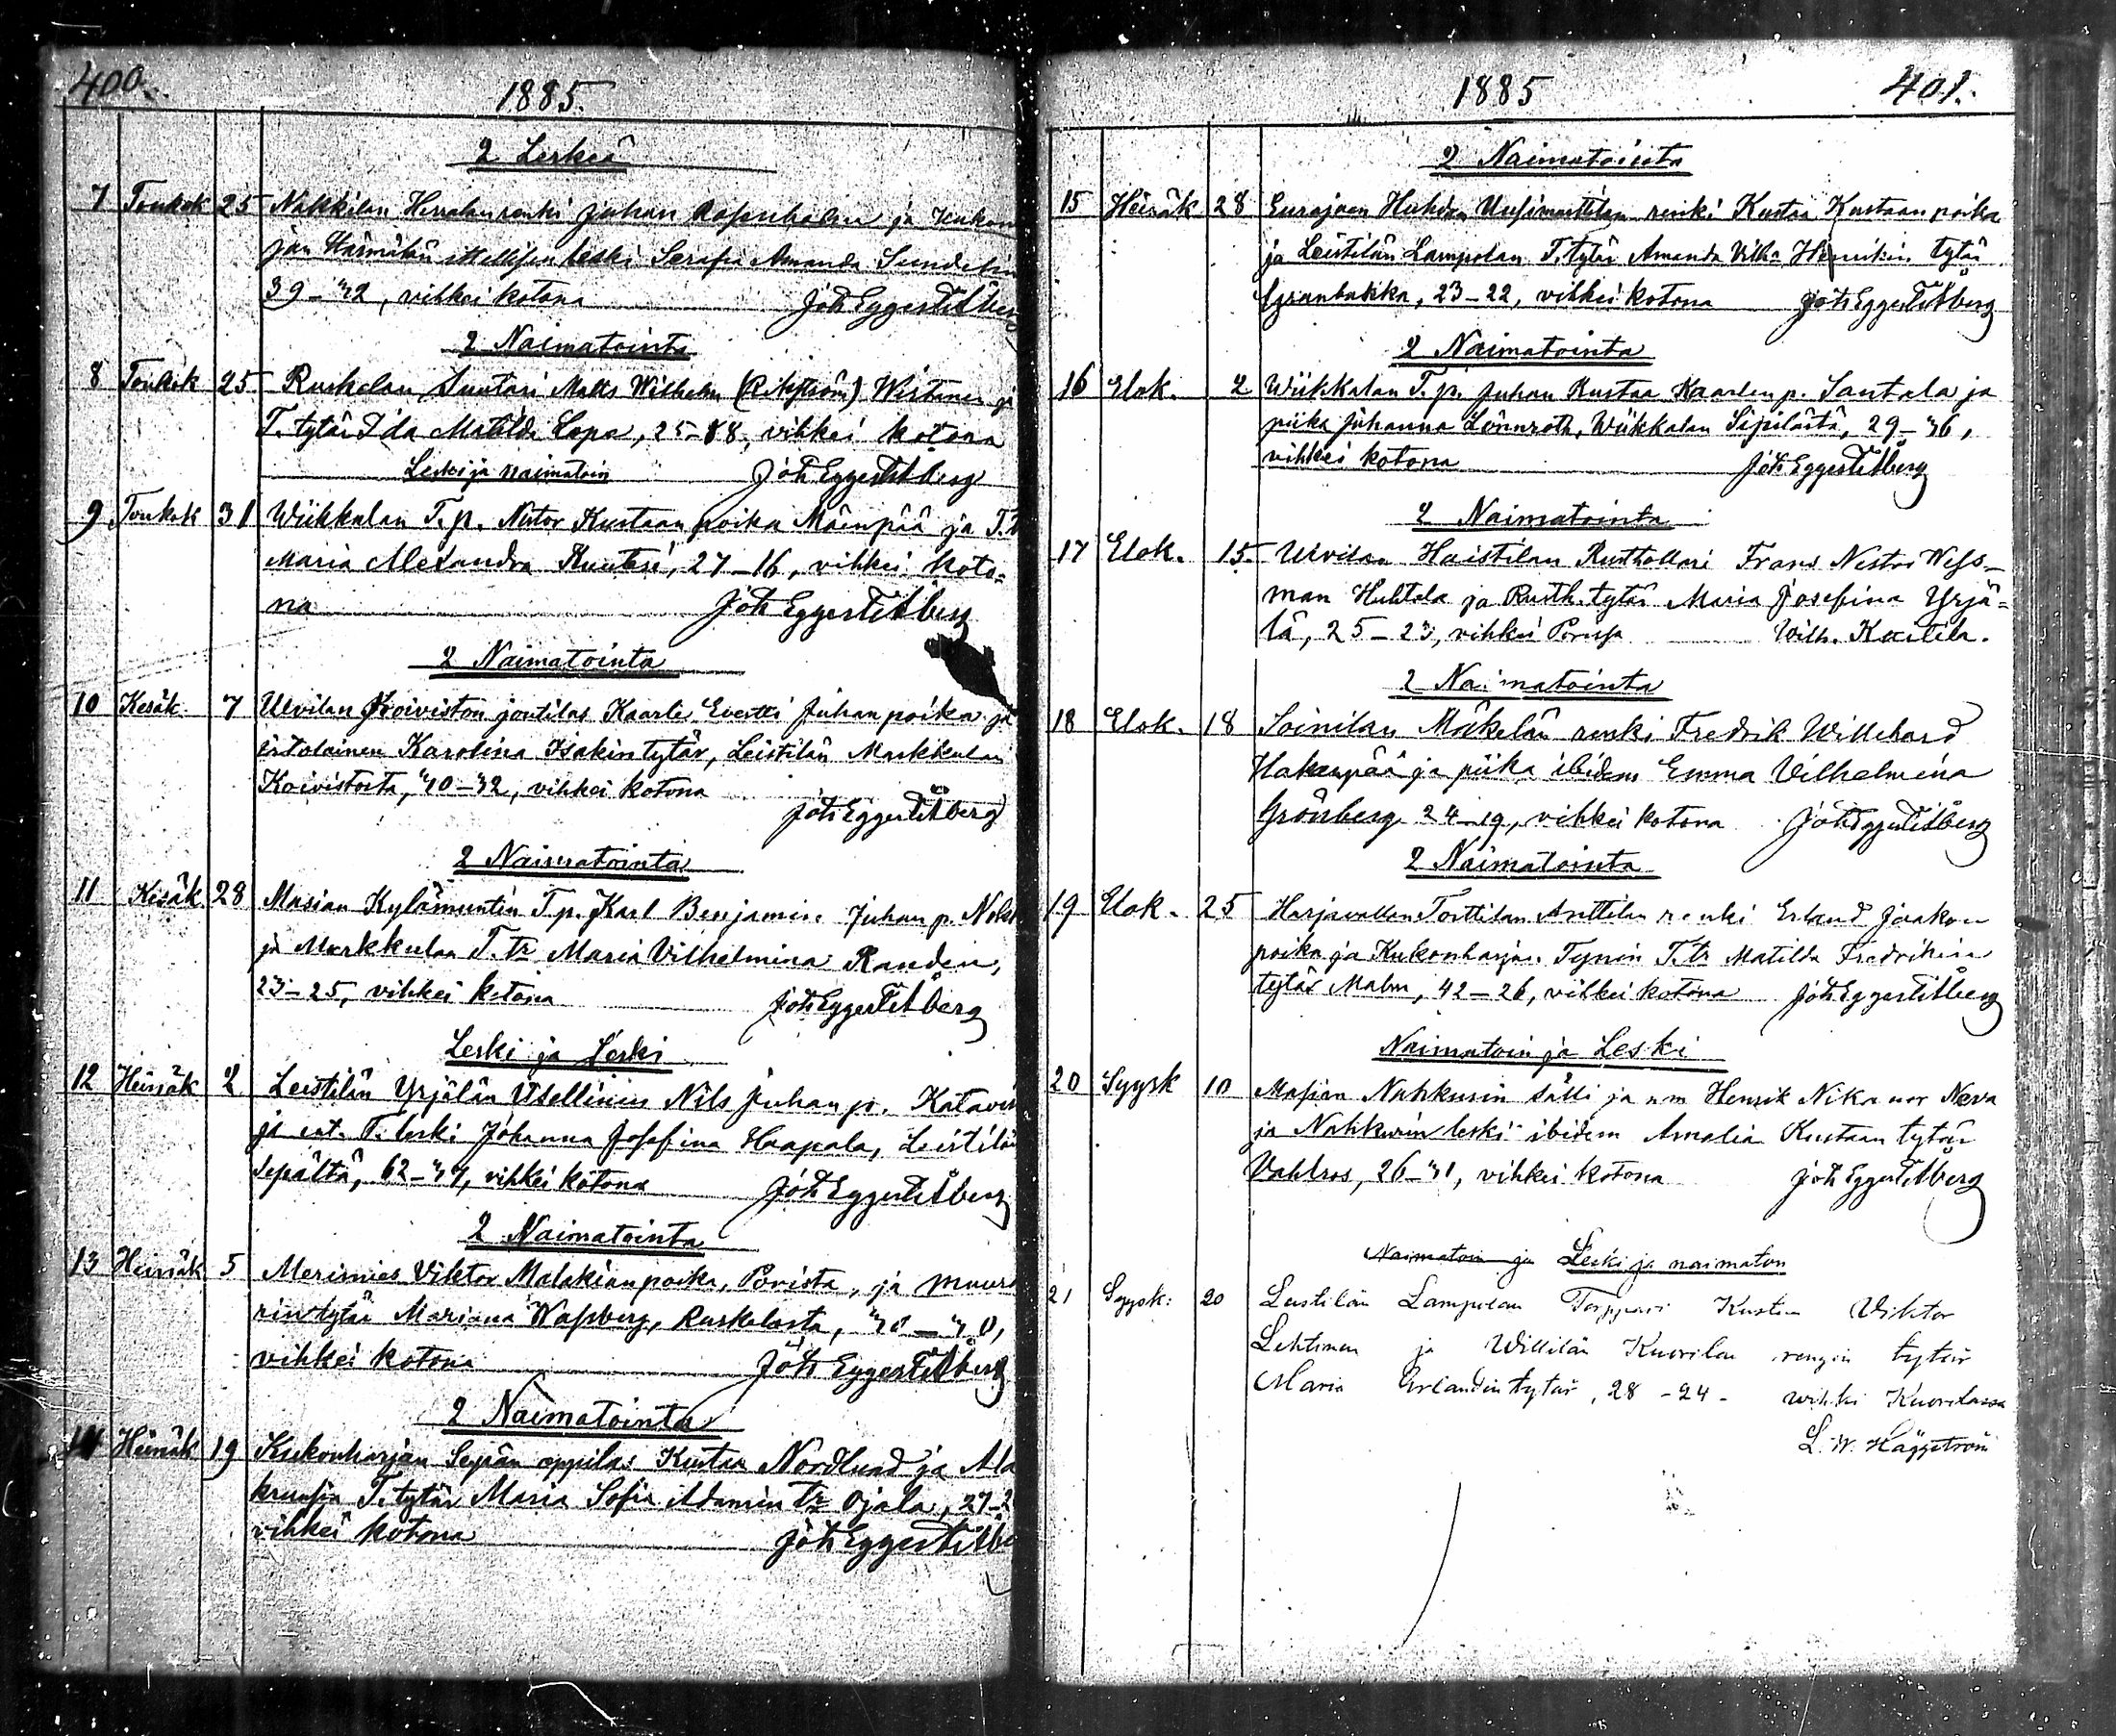 400.
1885.
2 Leskeä
7 Toukok 25 Nakkilan Herralan renki Juhan Rosenholm ja
jan Härmälän leski Serafia Amanda
39–42, vihkei kotona Joh Egger Titberg
2 Naimatointa
8 Toukok 25 Ruskelan Suutari Matts Wilhelm
T. tytär Ida Matilda Lapa, 25– vihkei kotona
Leski ja naimatoin Joh Egger Titberg
9 Toukok 31 Wiikkalan T. p. Nestor Kustaan poika Mäenpää ja T.
Maria Alexandra 27–16, vihkei koto=
na Joh Egger Titberg
2 Naimatointa
10 Kesäk. 7 Ulvilan Koiviston joutilas Kaarle Evertti Juhan poika ja
Karolina Isakin tytär, Leistilän Markkulan
Koivistosta, 40–42, vihkei kotona
Joh Egger Titberg
2 Naimatointa
11 Kesäk. 28 Masian Kylämuntin T. p. Karl Benjamin Juhan p.
ja Markkulan T. tr Maria Vilhelmina Randen,
23–25, vihkei kotona Joh Egger Titberg
Leski ja Leski
12 Heinäk 2 Leistilän Yrjälän Itsellinen Nils Juhan p.
ja ent. T. leski Johanna Josefina Haapala, Leistilän
Sepältä, 62–47, vihkei kotona Joh Egger Titberg
2 Naimatointa
13 Heinäk 5 Merimies Viktor Malakian poika, Porista, ja muura
rin tytär Mariana Wassberg, Ruskelasta, 40–40,
vihkei kotona Joh Egger Titberg
2 Naimatointa
14 Heinäk 19 Kukonharjan Sepän oppilas Kustaa Nordlund ja Ala
T. tytär Maria Sofia Adamin tr Ojala, 27–2
vihkei kotona Joh Egger Titbe
1885
401.
2 Naimatointa
15 Heinäk 28 Eurajoen renki Kustaa Kustaan poika
ja Leistilän Lampolan T. tytär Amanda Vilh. Henrikin tytär
Granbakka, 23–22, vihkei kotona Joh Egger Titberg
2 Naimatointa
16 Elok. 2 Wiikkalan T. p. Juhan Kustaa Kaarlen p. Santala ja
piika Johanna Lönnroth, Wiikkalan Sipilästä, 29–36,
vihkei kotona Joh Egger Titberg
2 Naimatointa
17 Elok. 15 Ulvilan Haistilan Rusthollari Frans Nestor Wess–
man Huhtala ja Rusth. tytär Maria Josefina Yrjä=
lä, 25–23, vihkei Porissa Wilh. Kartila.
2 Naimatointa
18 Elok. 18 Soinilan Mäkelän renki Fredrik Willehard
Hakanpää ja piika ibidem Emma Vilhelmina
Grönberg 24–19, vihkei kotona Joh Egger Titberg
2 Naimatointa
19 Elok. 25 Harjavallan Torttilan Anttilan renki Erland Jaakon
poika ja Kukonharjan Tynin T. tr Matilda Fredrikin
tytär Malm, 42–26, vihkei kotona Joh Egger Titberg
Naimatoin ja Leski
20 Syysk 10 Masian Nahkurin sälli ja nm Henrik Nikanor Neva
ja Nahkurin leski ibidem Amalia Kustaan tytär
Vahlros, 26–41, vihkei kotona Joh Egger Titberg
Naimatoin ja Leski ja naimaton
21 Syysk: 20 Leistilän Lampolan Torppari Kustaa Viktor
Lehtinen ja Willilän Kuorilan rengin tytär
Maria Erlandin tytär, 28–24 – wihki Kuorilassa
L. W. Häggström